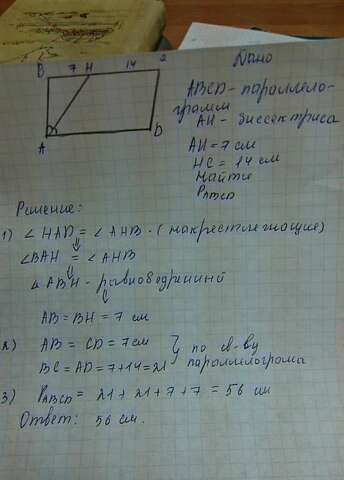 B 7 H 14 C
A D
Дано
ABCD - параллело-
грамм
AH - биссектриса
AH = 7 см
HC = 14 см
Найти
P ABCD
Решение:
1) ∠HAD = ∠AHB - (накрестлежащие)
∠BAH = ∠AHB
△ABH - равнобедренный
AB = BH = 7 см
2) AB = CD = 7 см } по св-ву
BC = AD = 7 + 14 = 21 параллелограма
3) P ABCD = 21 + 21 + 7 + 7 = 56 см
Ответ: 56 см.